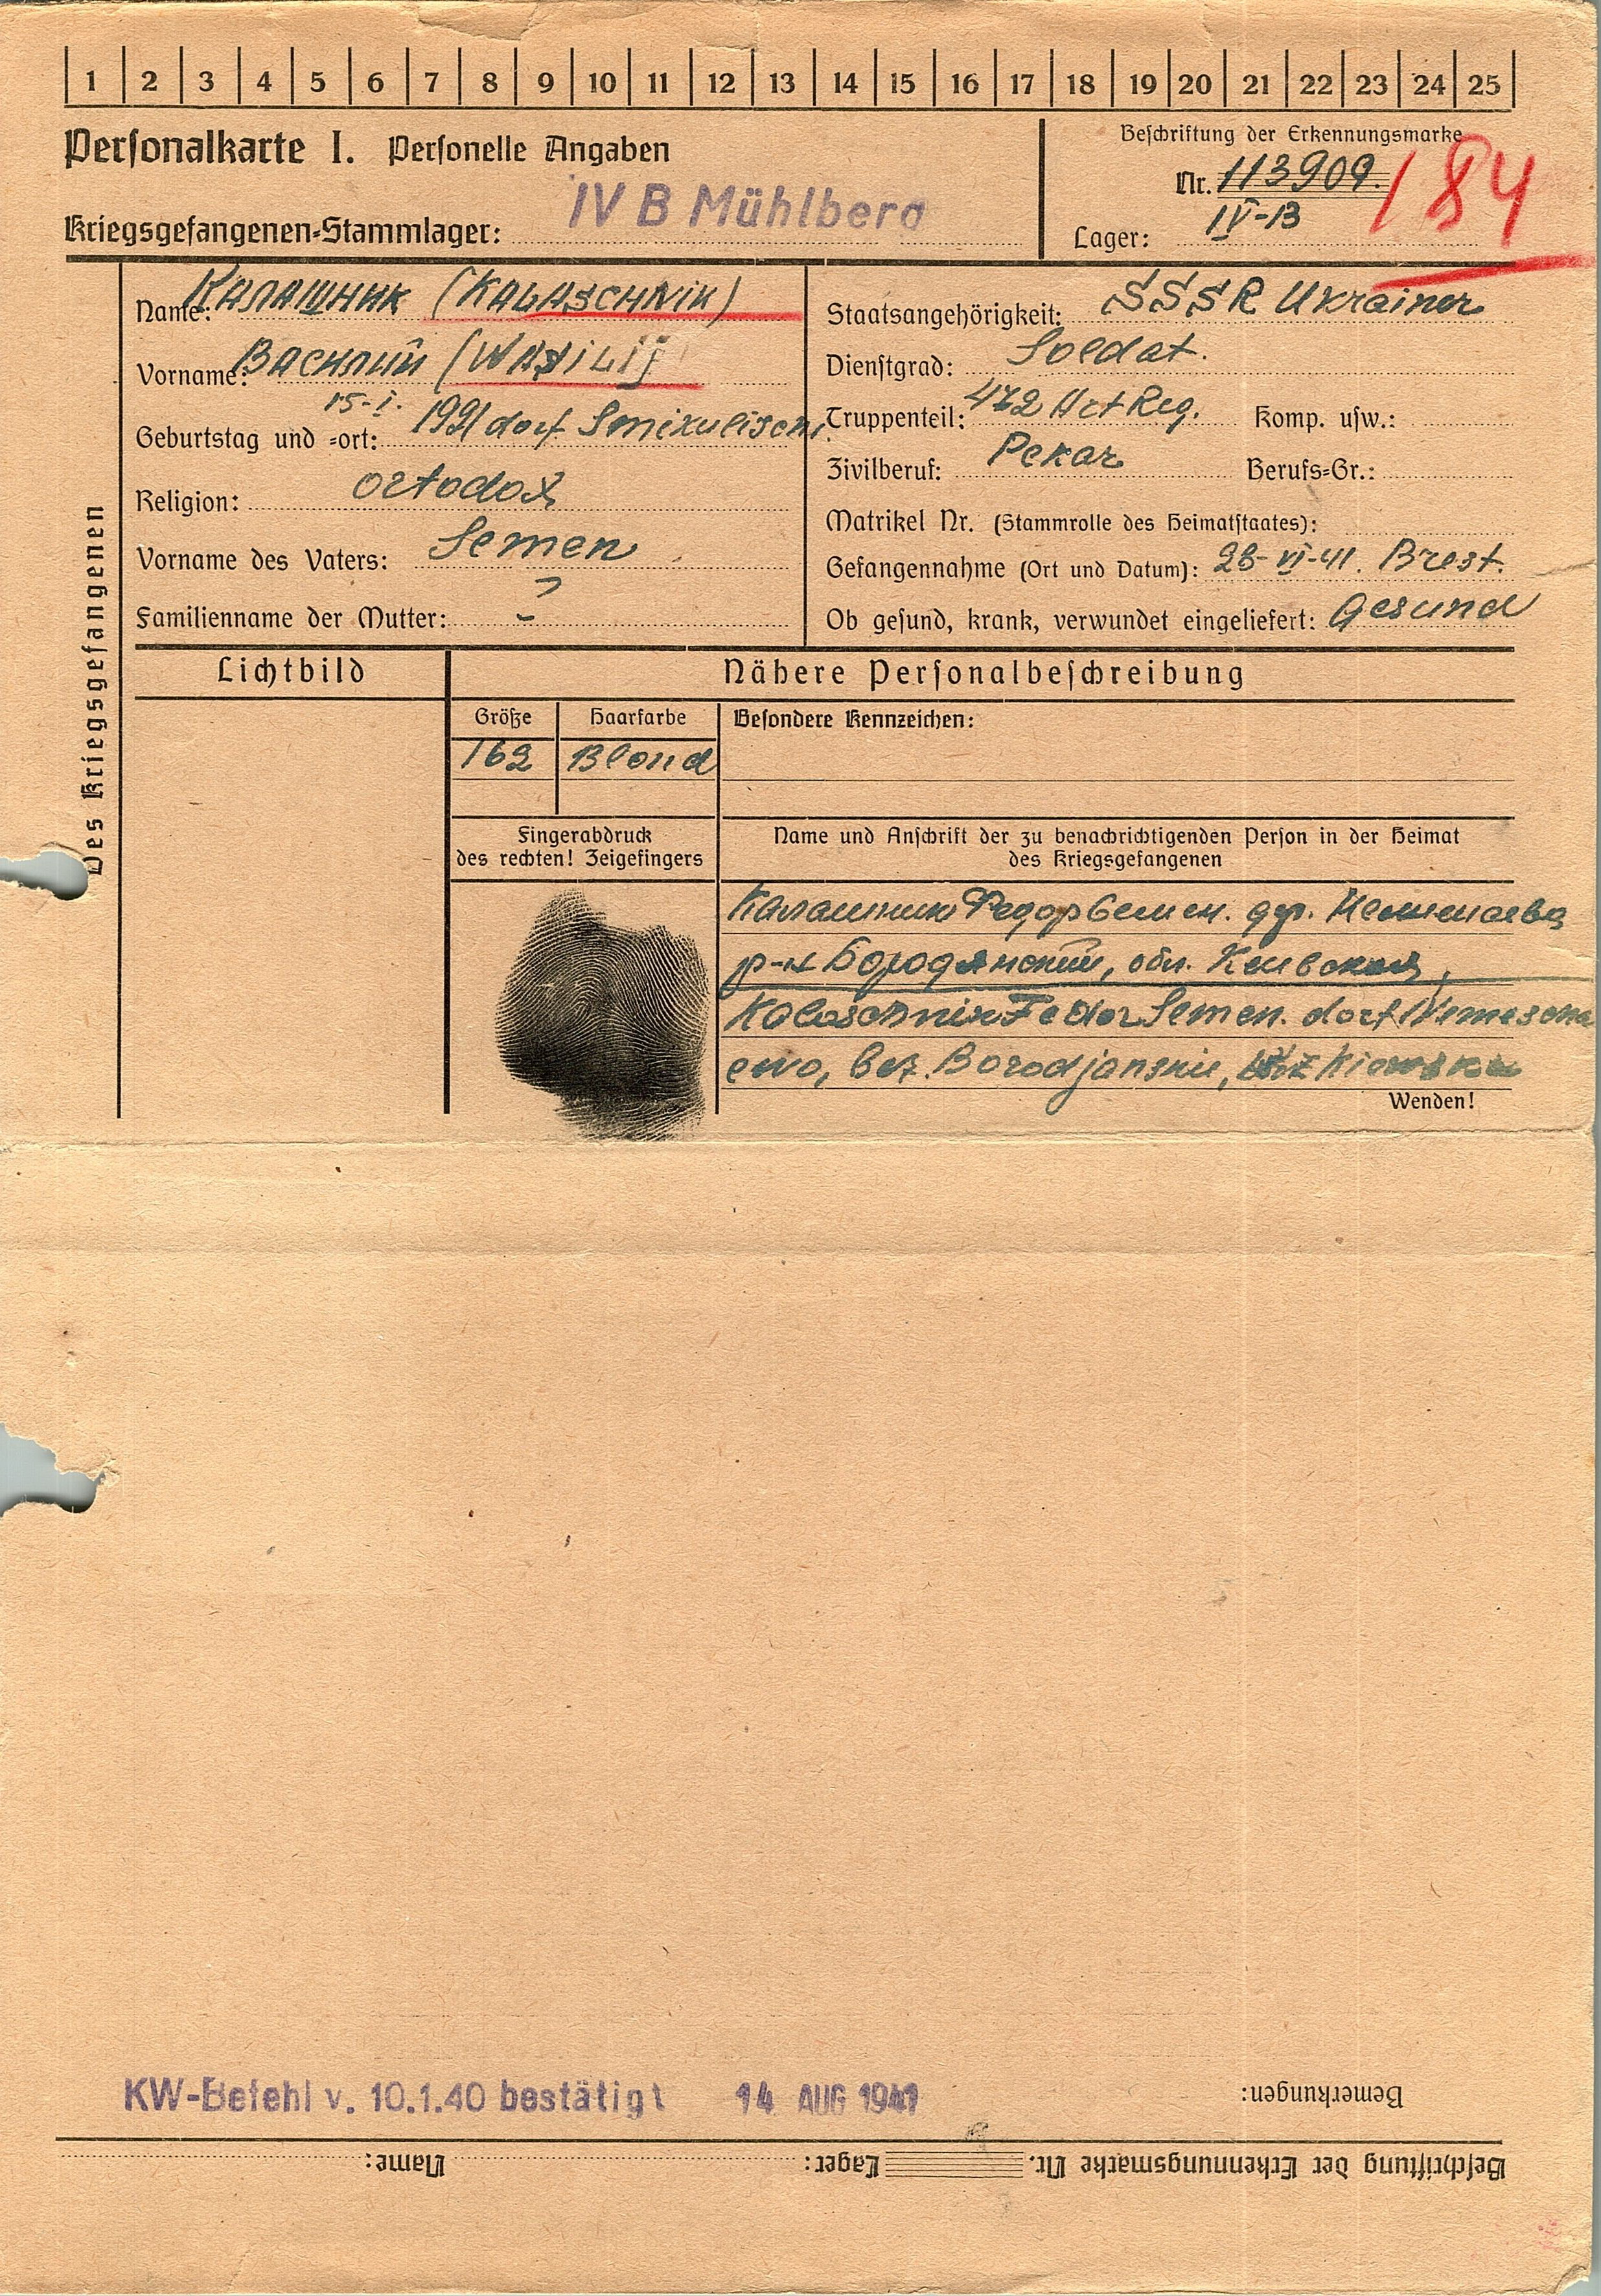 1 2 3 4 5 6 7 8 9 10 11 12 13 14 15 16 17 18 19 20 21 22 23 24 25
Personalkarte I. Personelle Angaben
Beschriftung der Erkennungsmarke
Nr. 113909.
184
Kriegsgefangenen-Stammlager: IV B Mühlberg
Lager: IV-B
Des Kriegsgefangenen
Name: Калашник (KALASCHNIK)
Vorname: Василий (WASILIJ)
15-I.
Geburtstag und -ort: 1921 dorf
Religion: Ortodox
Vorname des Vaters: Semen
Familienname der Mutter: ?
Staatsangehörigkeit: SSSR Ukrainer
Dienstgrad: Soldat.
Truppenteil: 472 Art Reg. Komp. usw.:
Zivilberuf: Pekar Berufs-Gr.:
Matrikel Nr. (Stammrolle des Heimatstaates):
Gefangennahme (Ort und Datum): 28-VI-41. Brest.
Ob gesund, krank, verwundet eingeliefert: Gesund
Lichtbild
Nähere Personalbeschreibung
Größe Haarfarbe Besondere Kennzeichen:
162 Blond
Fingerabdruck
des rechten! Zeigefingers
Name und Anschrift der zu benachrichtigenden Person in der Heimat
des Kriegsgefangenen
Калашник Федор Семен. дер.
р-н Бородянский, обл. Киевская,
Kalaschnik Fedor Semen. dorf Nemescha
ewo, bez. Borodjanskii, Kiewska
Wenden!
KW-Befehl v. 10.1.40 bestätigt 14 AUG 1941
Bemerkungen:
Beschriftung der Erkennungsmarke Nr. Lager: Name: